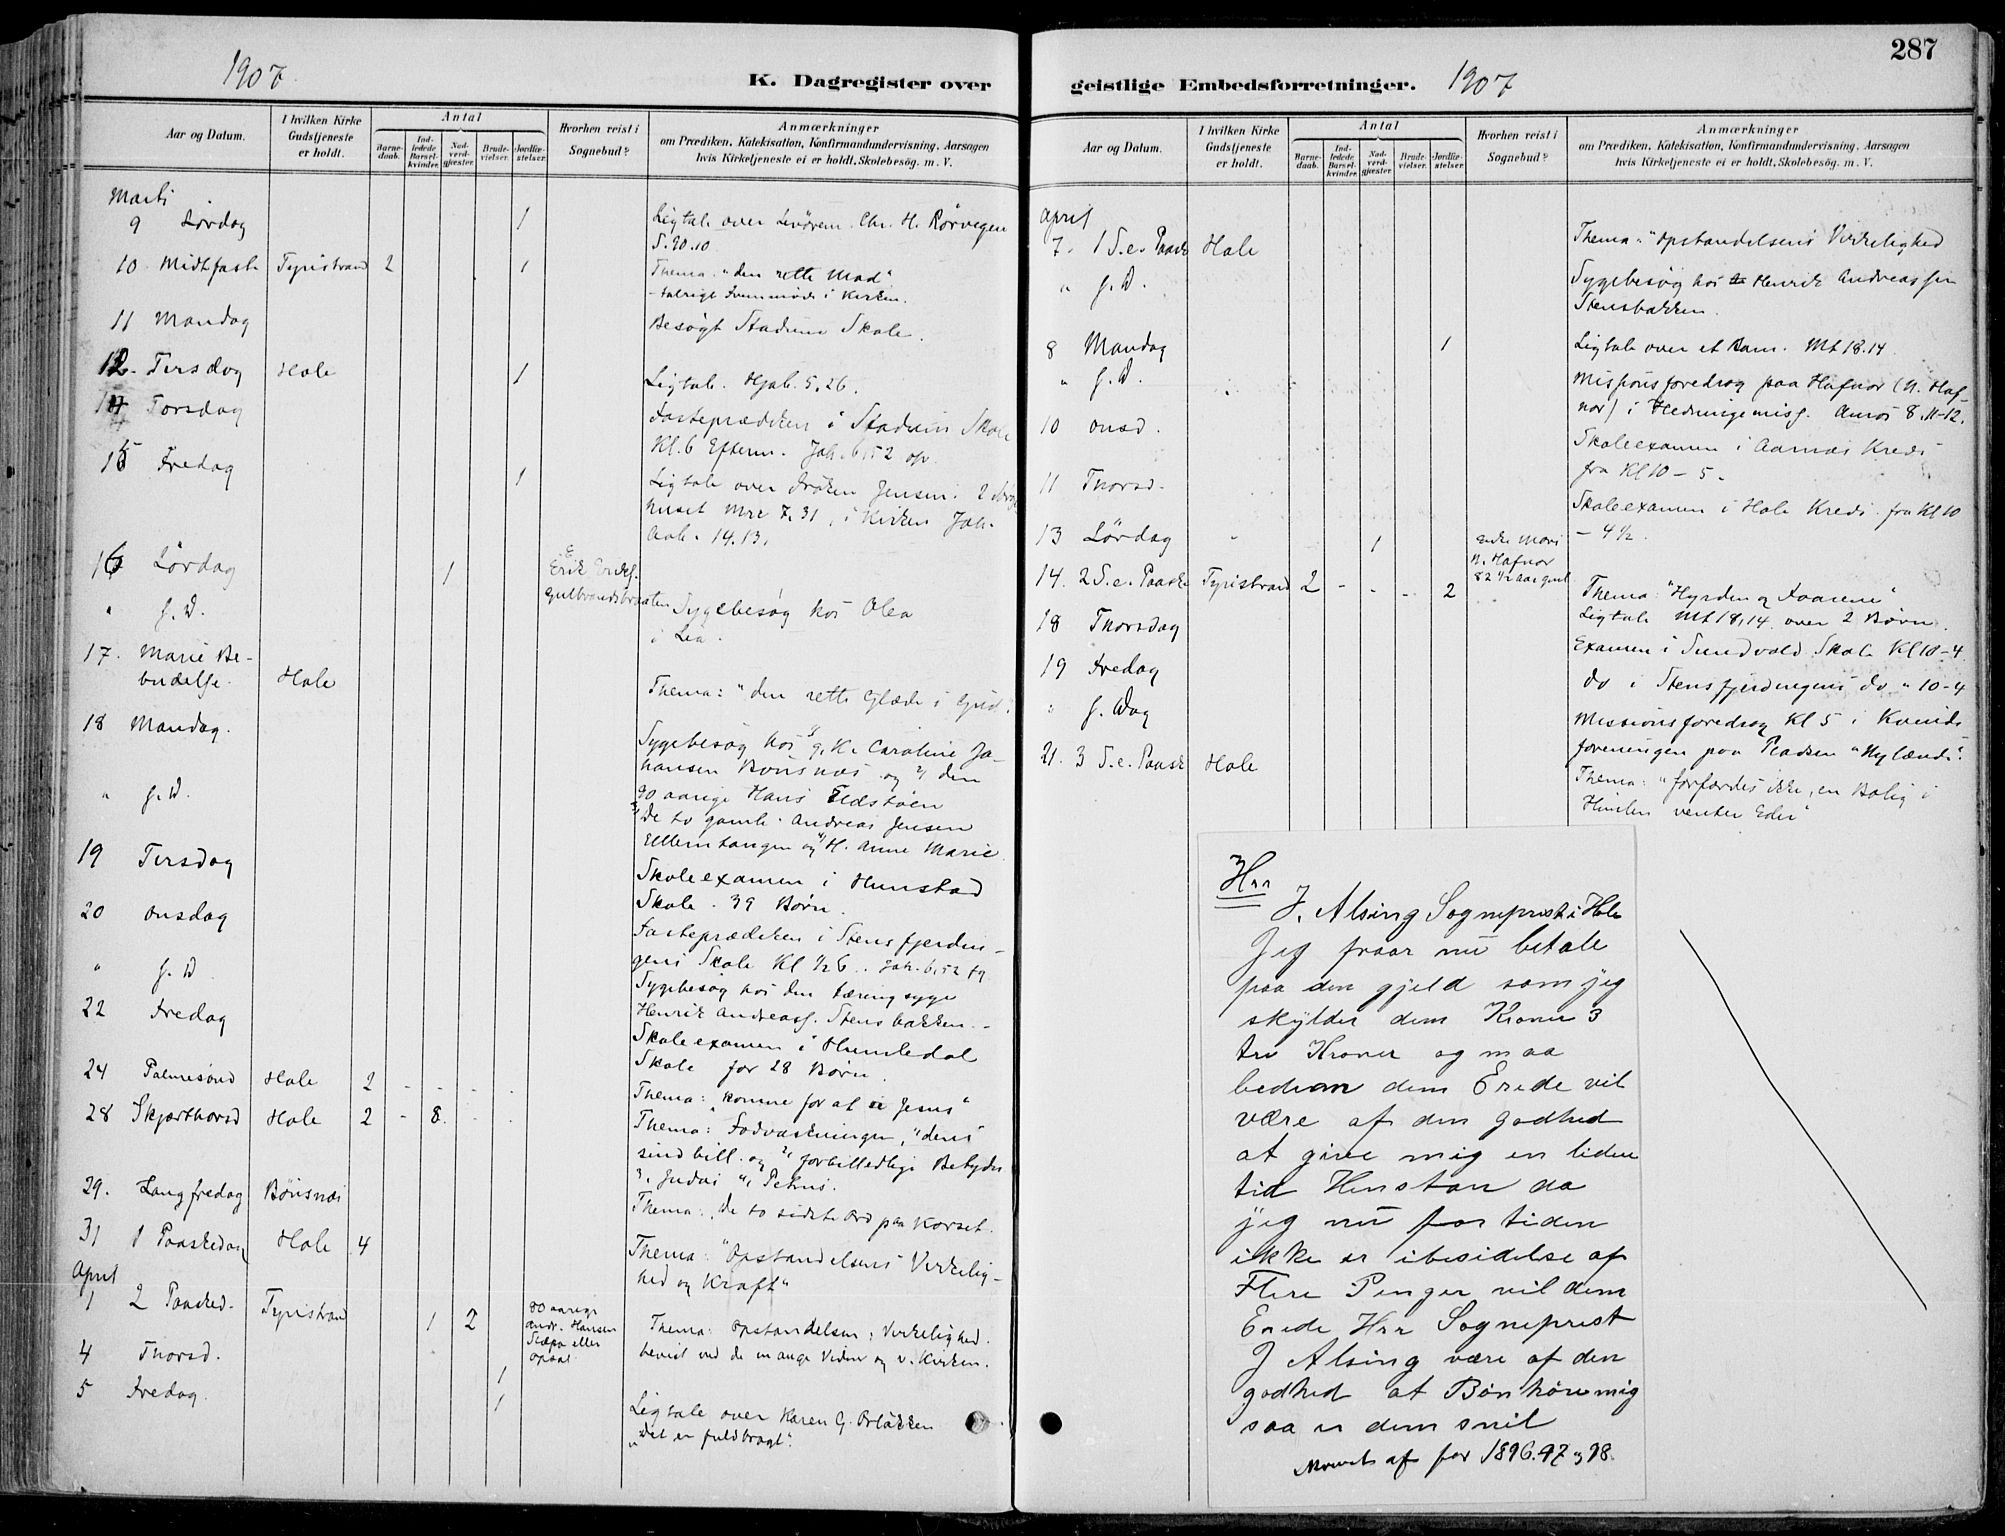 1907
K. Dagregister over
Aar og Datum.
I hvilken Kirke Gudstjeneste er holdt.
Antal
Barne-daab.
Ind-ledede Barsel-kvinder.
Nad-verd-gjæster.
Brude-vielser.
Jordfæ-stelser.
Hvorhen reist i Sognebud?
Anmærkninger
om Prædiken, Katekisation, Konfirmandundervisning, Aarsagen
hvis Kirketjeneste ei er holdt, Skolebesög. m. V.
Marts
9 Lørdag 1 Ligtale over Chr. H. Rørvegen
S. 90.10
10. Midtfaste Tyristrand 2 1 Thema. "den rette Mad"
-talrigt Fremmøde i Kirken.
11 Mandag Besøgt Stadum Skole.
12. Tirsdag Hole 1 Ligtale. Hjob. 5,26.
14 Torsdag Fasteprædiken i Stadum Skole
Kl. 6 Efterm. Joh. 6,52 og
15 Fredag 1 Ligtale over Frøken Jensen.
huset Mrc 7,31, i Kirken Joh.
Aab. 14.13.
16 Lørdag 1 Erik Eriks.
Gulbrandsbraaten
" s. D. Sygebesøg hos Olea
i Lia.
17. Marie Be-
budelse. Hole Thema: "den rette Glæde i Gud".
18 Mandag. Sygebesøg hos g. K. Caroline Jo-
hansen Bønsnæs og 2) den
" s. D. 90 aarige Hans
3) De to gamle. Andreas Jensen
Ellemtangen og 4) H. Anne Marie
19 Tirsdag Skoleexamen i Hunstad
Skole. 39 Børn.
20 Onsdag Fasteprædiken i Stensfjerdin-
gens Skole Kl ½6.. Joh. 6,52 fg.
" s. D. Sygebesøg hos den tæringsyge
Henrik Andreass. Stensbakken.
22 Fredag Skoleexamen i Humledal
Skole for 28 Børn.
24 Palmesønd Hole 2 - - - . Thema: "komme for at se Jesus"
28 Skjærthorsd Hole 2 - 8. Thema: Fodvaskningen, "dens
sindbill. og 2) forbilledlige Betydn
3, Judas 4, Petrus.
29. Langfredag Bønsnæs Thema: De to sidste Ord paa Korset.
31 1 Paaskedag Hole 4 Thema: "Opstandelsens Virkelig-
hed og Kraft"
April
1 2 Paasked. Tyristrand 1 2 80 aarige
Andr. Hansen
Slæpa eller
Opsal
Thema: Opstandelsens Virkelighed.
bevist ved de mange Vidner og v. Kirken.
4 Thorsd. 1
5 Fredag. 1 Ligtale over Karen G. Ørløkken
"Det er fuldbragt".
287
geistlige Embedsforretninger. 1907
Aar og Datum.
I hvilken Kirke Gudstjeneste er holdt.
Antal
Barne-daab.
Ind-ledede Barsel-kvinder.
Nad-verd-gjæster.
Brude-vielser.
Jordfæ-stelser.
Hvorhen reist i Sognebud?
Anmærkninger
om Prædiken, Katekisation, Konfirmandundervisning, Aarsagen
hvis Kirketjeneste ei er holdt, Skolebesög. m. V.
April
7. 1 S. e. Paaske Hole Thema: "Opstandelsens Virkelighed
" s. D. Sygebesøg hos Henrik Andreassen
Stensbakken.
8 Mandag 1 Ligtale over et Barn. Mt 18.14.
" s. D. Missionsforedrag paa Hafnor (N. Haf-
nor) i Hedningemiss. Amos 8.11-12.
10 Onsd. Skoleexamen i Aarnæs Kreds
fra Kl 10 - 5.
11 Thorsd. Skoleexamen i Hole Kreds. fra Kl 10
- 4½.
13 Lørdag 1 Enke Mari
N. Hafnor
82½ aar gml
14. 2 S. e. Paaske Tyristrand 2 - - - 2 Thema: "Hyrden og Faarene"
Ligtale Mt 18,14 over 2 Børn.
18 Thorsdag Examen i Sundvold Skole Kl 10-4
19 Fredag do i Stensfjerdingens do " 10-4
" s. Dag Missionsforedrag Kl 5 i Kvinde
foreningen paa Pladsen "Nylænde".
21. 3 S. e. Paaske Hole Thema: "forfærdes ikke, en Bolig i
Himlen venter Eder"
Hrr
J. Alsing Sogneprest i Hole
Jeg fraar nu betale
paa den gjeld som jeg
skylder dem Kroner 3
tre Kroner og maa
bedram dem Erede vil
være af den godhed
at give mig en liden
tid Henstan da
jeg nu for tiden
ikke er ibesidelse af
Flere Penger vil dem
Erede Hrr Sogneprest
J Alsing være af den
godhed at Bønhøre mig
saa er dem snil
af for 1896.97 og 98.